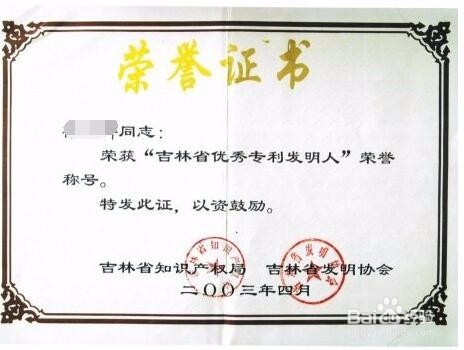 荣誉证书
同志：
荣获“吉林省优秀专利发明人”荣誉
称号。
特发此证，以资鼓励。
吉林省知识产权局 吉林省发明协会
二〇〇三年四月
Baidu经验
jingyan.baidu.com